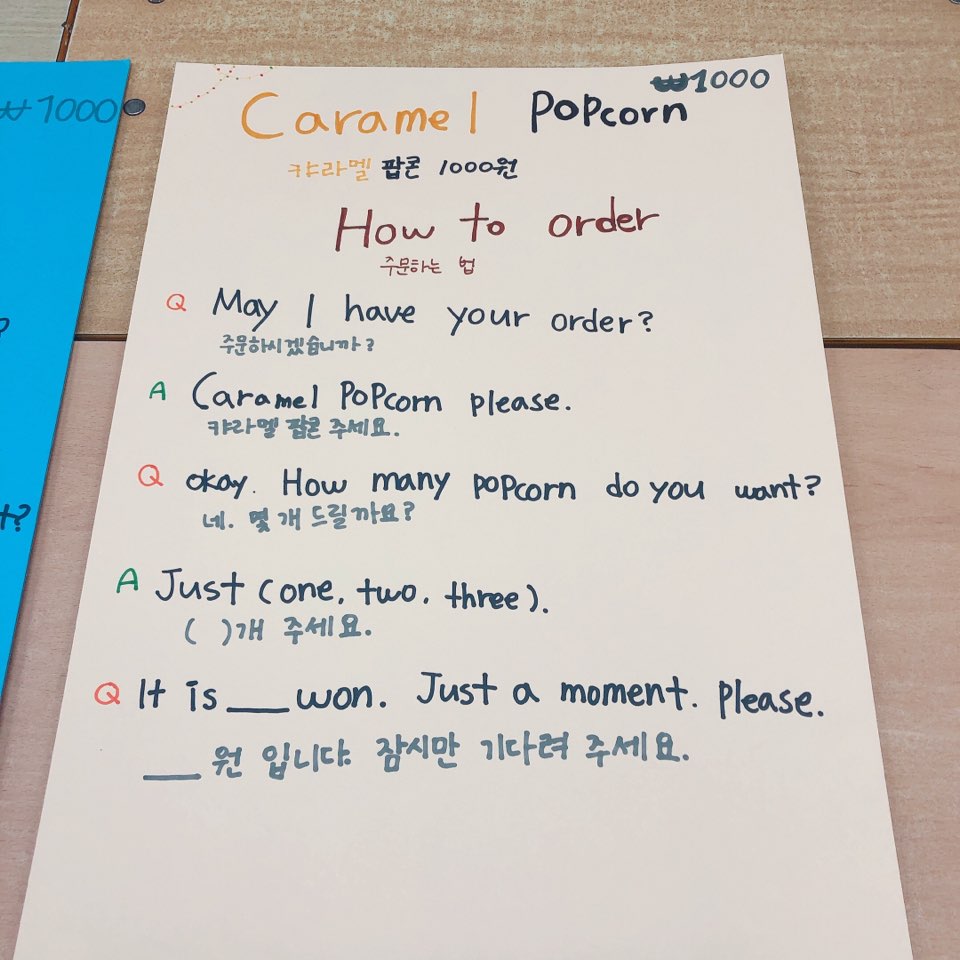 ₩1000
?
t?
₩1000
Caramel Popcorn
캬라멜 팝콘 1000원
How to order
주문하는 법
Q May I have your order?
주문하시겠습니까?
A Caramel Popcorn please.
캬라멜 팝콘 주세요.
Q okay. How many popcorn do you want?
네. 몇 개 드릴까요?
A Just (one, two, three).
( )개 주세요.
Q It is ___ won. Just a moment. Please.
___ 원 입니다. 잠시만 기다려 주세요.